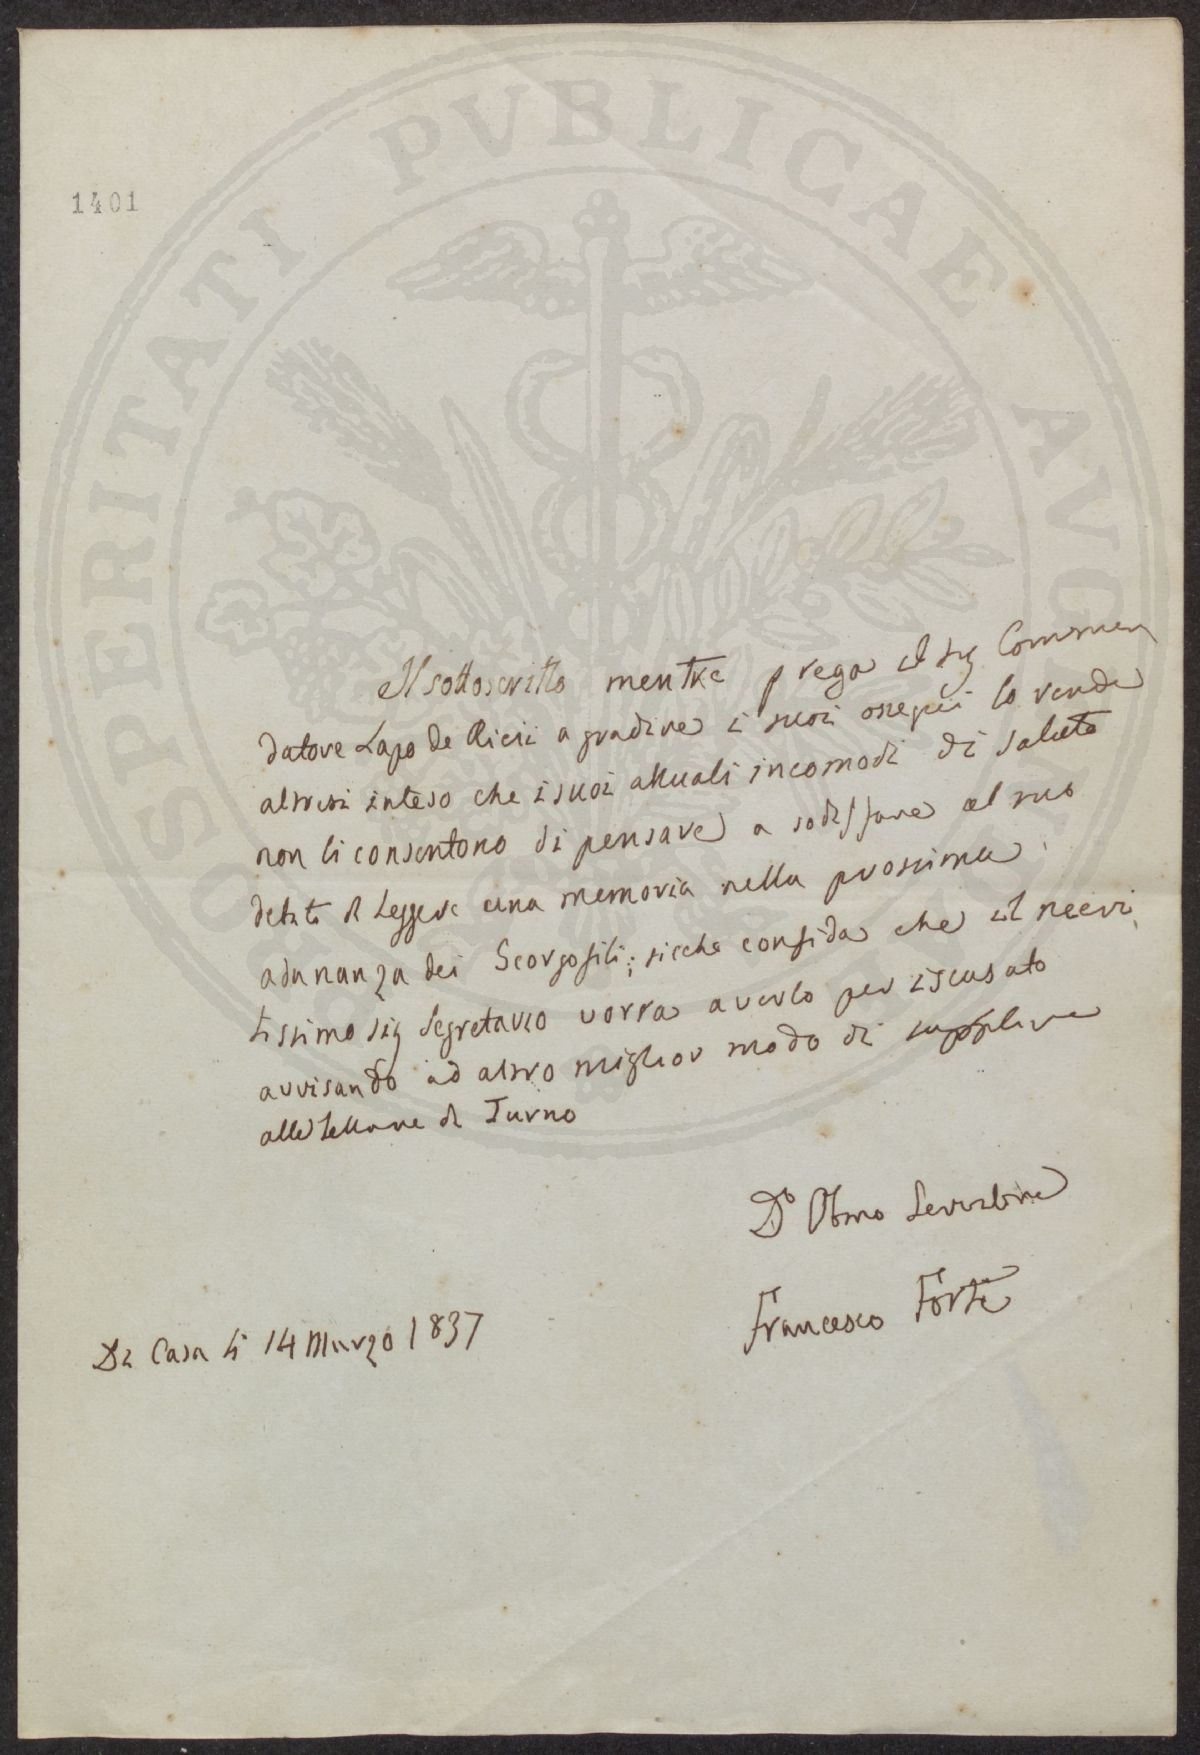 PROSPERITATI PVBLICAE AVGENDAE
1401
Il sottoscritto mentre prega il Sig Commen
datore Lapo de Ricci a gradire i suoi ossequi lo rende
altresi inteso che i suoi attuali incomodi di salute
non li consentono di pensare a sodisfare al suo
debito di Leggere una memoria nella prossima
adunanza dei Georgofili; sicche confida che il
tissimo Sig Segretario vorra averlo per iscusato
avvisando ad altro miglior modo di supplire
alle Letture di Turno
Do Obmo Servitore
Francesco Forti
Di Casa li 14 Marzo 1837